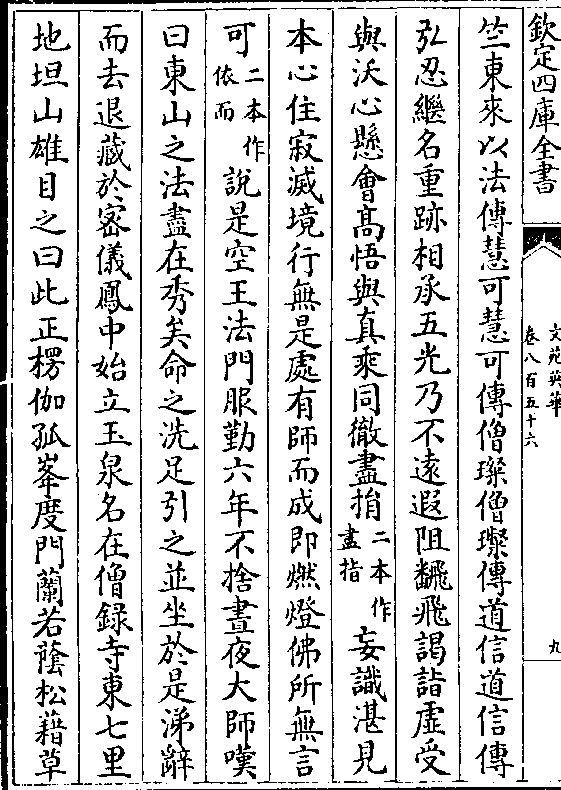 欽定四庫全書
文苑英華
卷八百五十六
九
竺東來以法傳慧可慧可傳僧璨僧璨傳道信道信傳
弘忍繼名重跡相承五光乃不遠遐阻翻飛謁詣虛受
與沃心懸會高悟與真乘同徹盡捐二本作盡指妄識湛見
本心住寂滅境行無是處有師而成即燃燈佛所無言
可二本作依而說是空王法門服勤六年不捨晝夜大師嘆
曰東山之法盡在秀矣命之洗足引之並坐於是涕辭
而去退藏於密儀鳳中始立玉泉名在僧録寺東七里
地坦山雄目之曰此正楞伽孤峯度門蘭若蔭松藉草